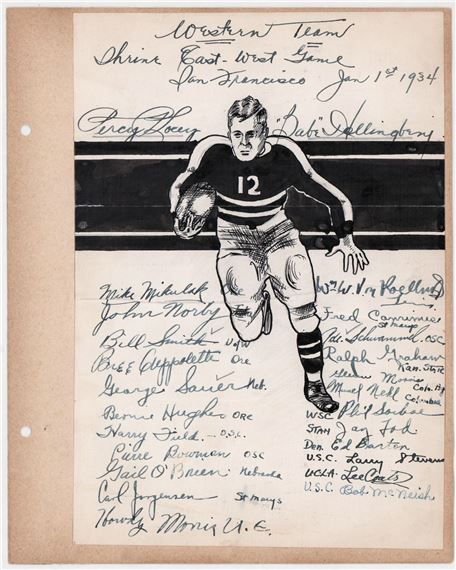 Western Team
Shrine East-West Game
San Francisco Jan 1st 1934
Percy Locey "Babe" Hollingbery
12
Mike Mikulak Ore
John Norby
Bill Smith U of W
Ore
George Sauer Neb.
Bernie Hughes ORE
Harry Field O.S.C.
Bowman OSC
Gail O'Brien Nebraska
Carl Jorgensen St Marys
Howdy
Wm W.
Fred Canrinus
St Marys
Ade Schwammel OSC
Ralph Graham
Kan. State
Glenn Morris
Colo. Ag
WSC Phil Sarboe
STAN Jay Tod
Den. Ed Barton
U.S.C. Larry Stevens
UCLA Lee Coats
U.S.C. Bob McNeish